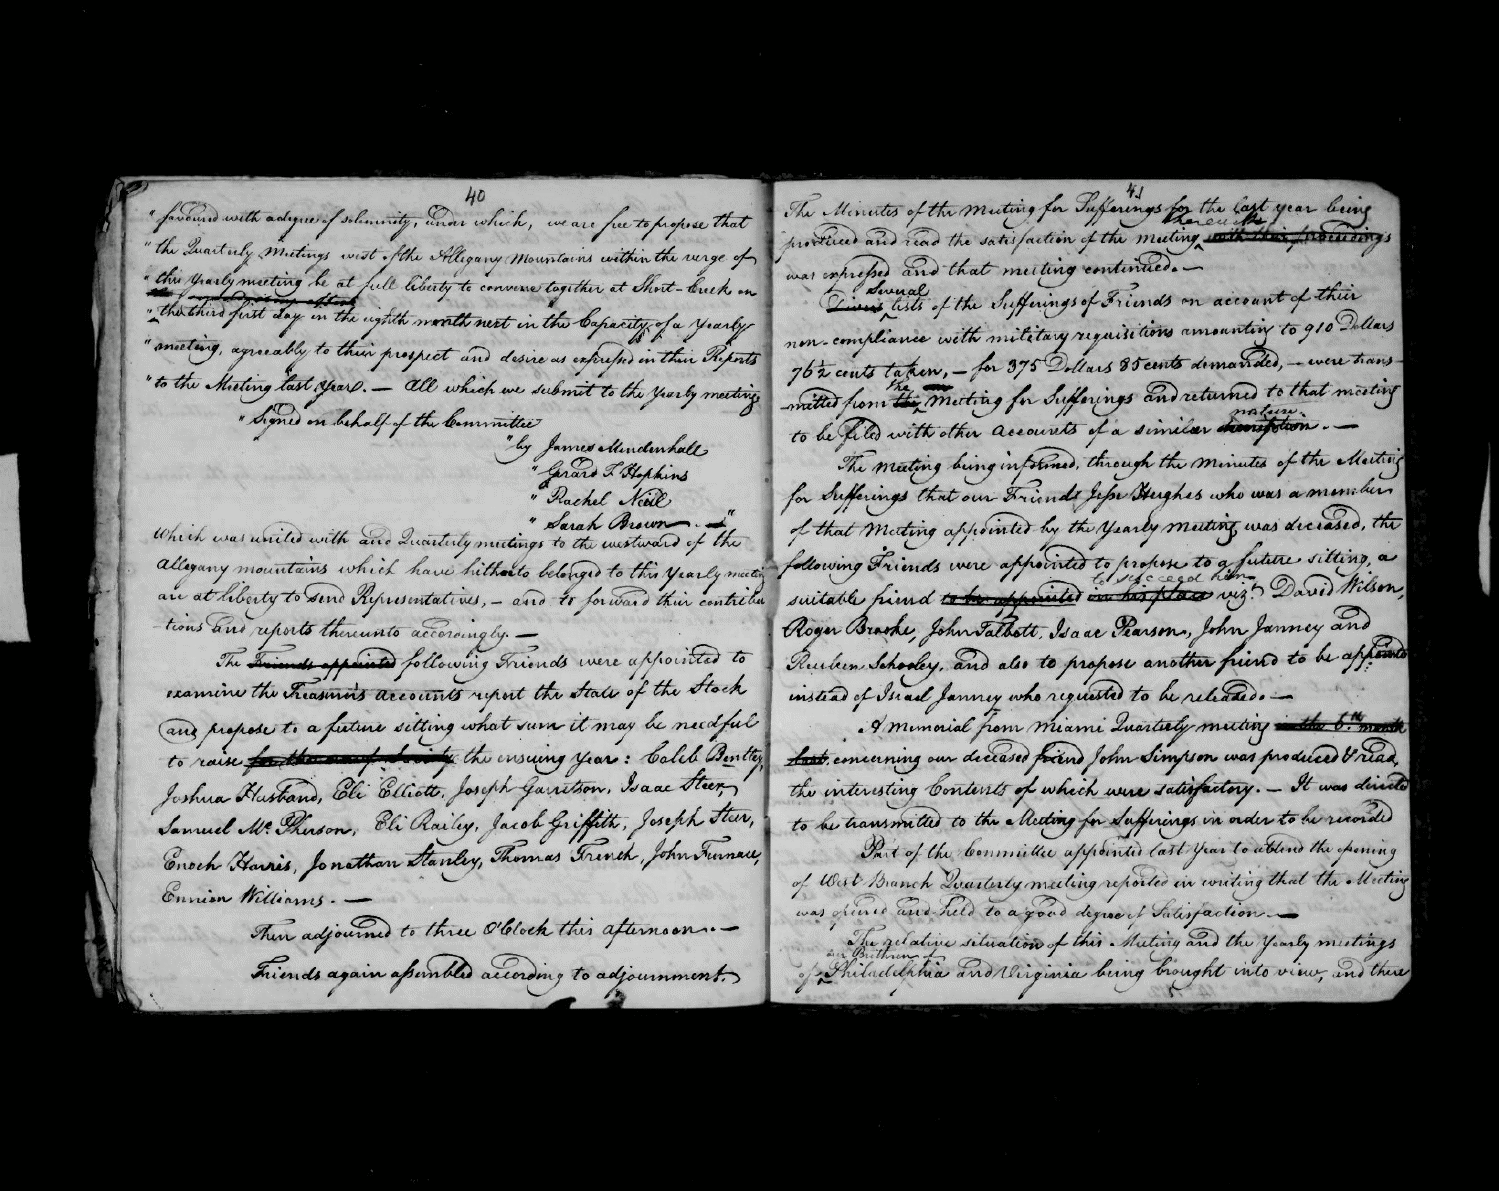 40
" favoured with a degree of solemnity, under which, we are free to propose that
" the Quarterly Meetings west of the Allegany Mountains within the verge of
" this Yearly meeting be at full liberty to convene together at Short-Creek on
" the third first day in the eighth month next in the Capacity of a Yearly
" meeting, agreeably to their prospect and desire as expressed in their Reports
" to the Meeting last Year. — All which we submit to the Yearly meeting
" Signed on behalf of the Committee
" by James Mendenhall
" Gerard T Hopkins
" Rachel Neill
" Sarah Brown. — "
Which was united with and Quarterly meetings to the westward of the
Allegany mountains which have hitherto belonged to this Yearly meeting
are at liberty to send Representatives, — and to forward their contribu
tions and reports thereunto accordingly. —
The Friends appointed following Friends were appointed to
examine the Treasurers accounts report the State of the Stock
and propose to a future sitting what sum it may be needful
to raise the ensuing Year: Caleb Bentley,
Joshua Husband, Eli Elliott, Joseph Garretson, Isaac Steer,
Samuel Mc Pherson, Eli Railey, Jacob Griffith, Joseph Steer,
Enoch Harris, Jonathan Stanley, Thomas French, John Furnace,
Ennion Williams. —
Then adjourned to three O'Clock this afternoon. —
Friends again assembled according to adjournment.
41
The Minutes of the Meeting for Sufferings for the last year being
therewith
produced and read the satisfaction of the meeting with their proceedings
was expressed and that meeting continued. —
Several
Divers lists of the Sufferings of Friends on account of their
non-compliance with military requisitions amounting to 910 Dollars
76½ cents taken, — for 375 Dollars 85 cents demanded, — were trans-
the
mitted from Meeting for Sufferings and returned to that meeting
nature.
to be filed with other accounts of a similar description. —
The meeting being informed, through the minutes of the Meeting
for Sufferings that our Friend Jesse Hughes who was a member
of that Meeting appointed by the Yearly meeting was deceased, the
following Friends were appointed to propose to a future sitting, a
to succeed him
suitable friend to be appointed in his place viz: David Wilson,
Roger Brooke, John Talbott, Isaac Pearson, John Janney and
Reuben Schooley, and also to propose another friend to be appointed
instead of Israel Janney who requested to be released. —
A memorial from Miami Quarterly meeting in the 8th month
last, concerning our deceased friend John Simpson was produced & read,
the interesting Contents of which were satisfactory. — It was directed
to be transmitted to the Meeting for Sufferings in order to be recorded
Part of the Committee appointed last Year to attend the opening
of West Branch Quarterly meeting reported in writing that the Meeting
was opened and held to a good degree of Satisfaction. —
The relative situation of this Meeting and the Yearly meetings
our Brethren of
of Philadelphia and Virginia being brought into view, and there